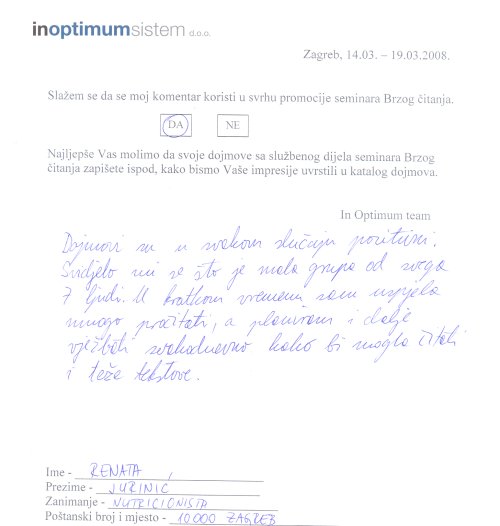 inoptimumsistem d.o.o.
Zagreb, 14.03. – 19.03.2008.
Slažem se da se moj komentar koristi u svrhu promocije seminara Brzog čitanja.
DA NE
Najljepše Vas molimo da svoje dojmove sa službenog dijela seminara Brzog
čitanja zapišete ispod, kako bismo Vaše impresije uvrstili u katalog dojmova.
In Optimum team
Dojmovi su u svakom slučaju pozitivni.
Svidjelo mi se što je mala grupa od svega
7 ljudi. U kratkom vremenu sam uspjela
mnogo pročitati, a planiram i dalje
vježbati svakodnevno kako bi mogla čitati
i teže tekstove.
Ime - RENATA
Prezime - JURINIC
Zanimanje - NUTRICIONISTA
Poštanski broj i mjesto - 10.000 ZAGREB